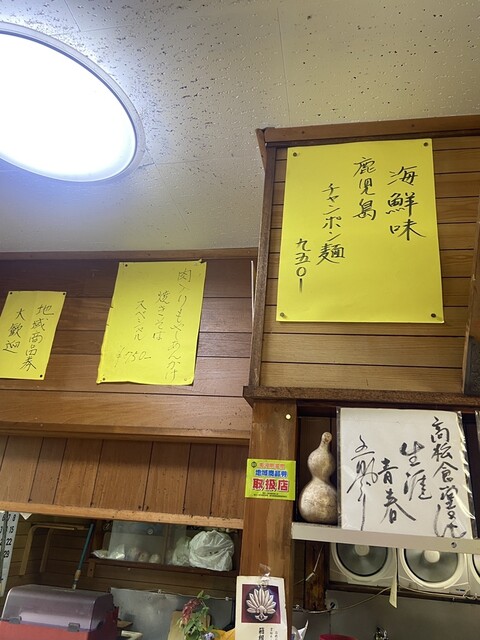 海鮮味
鹿児島
チャンポン麺
九五〇ー
肉入りもやしあんかけ
焼きそば
スペシャル
¥750
地域商品券
大歓迎
地域商品券
取扱店
高松食堂は
生涯
青春